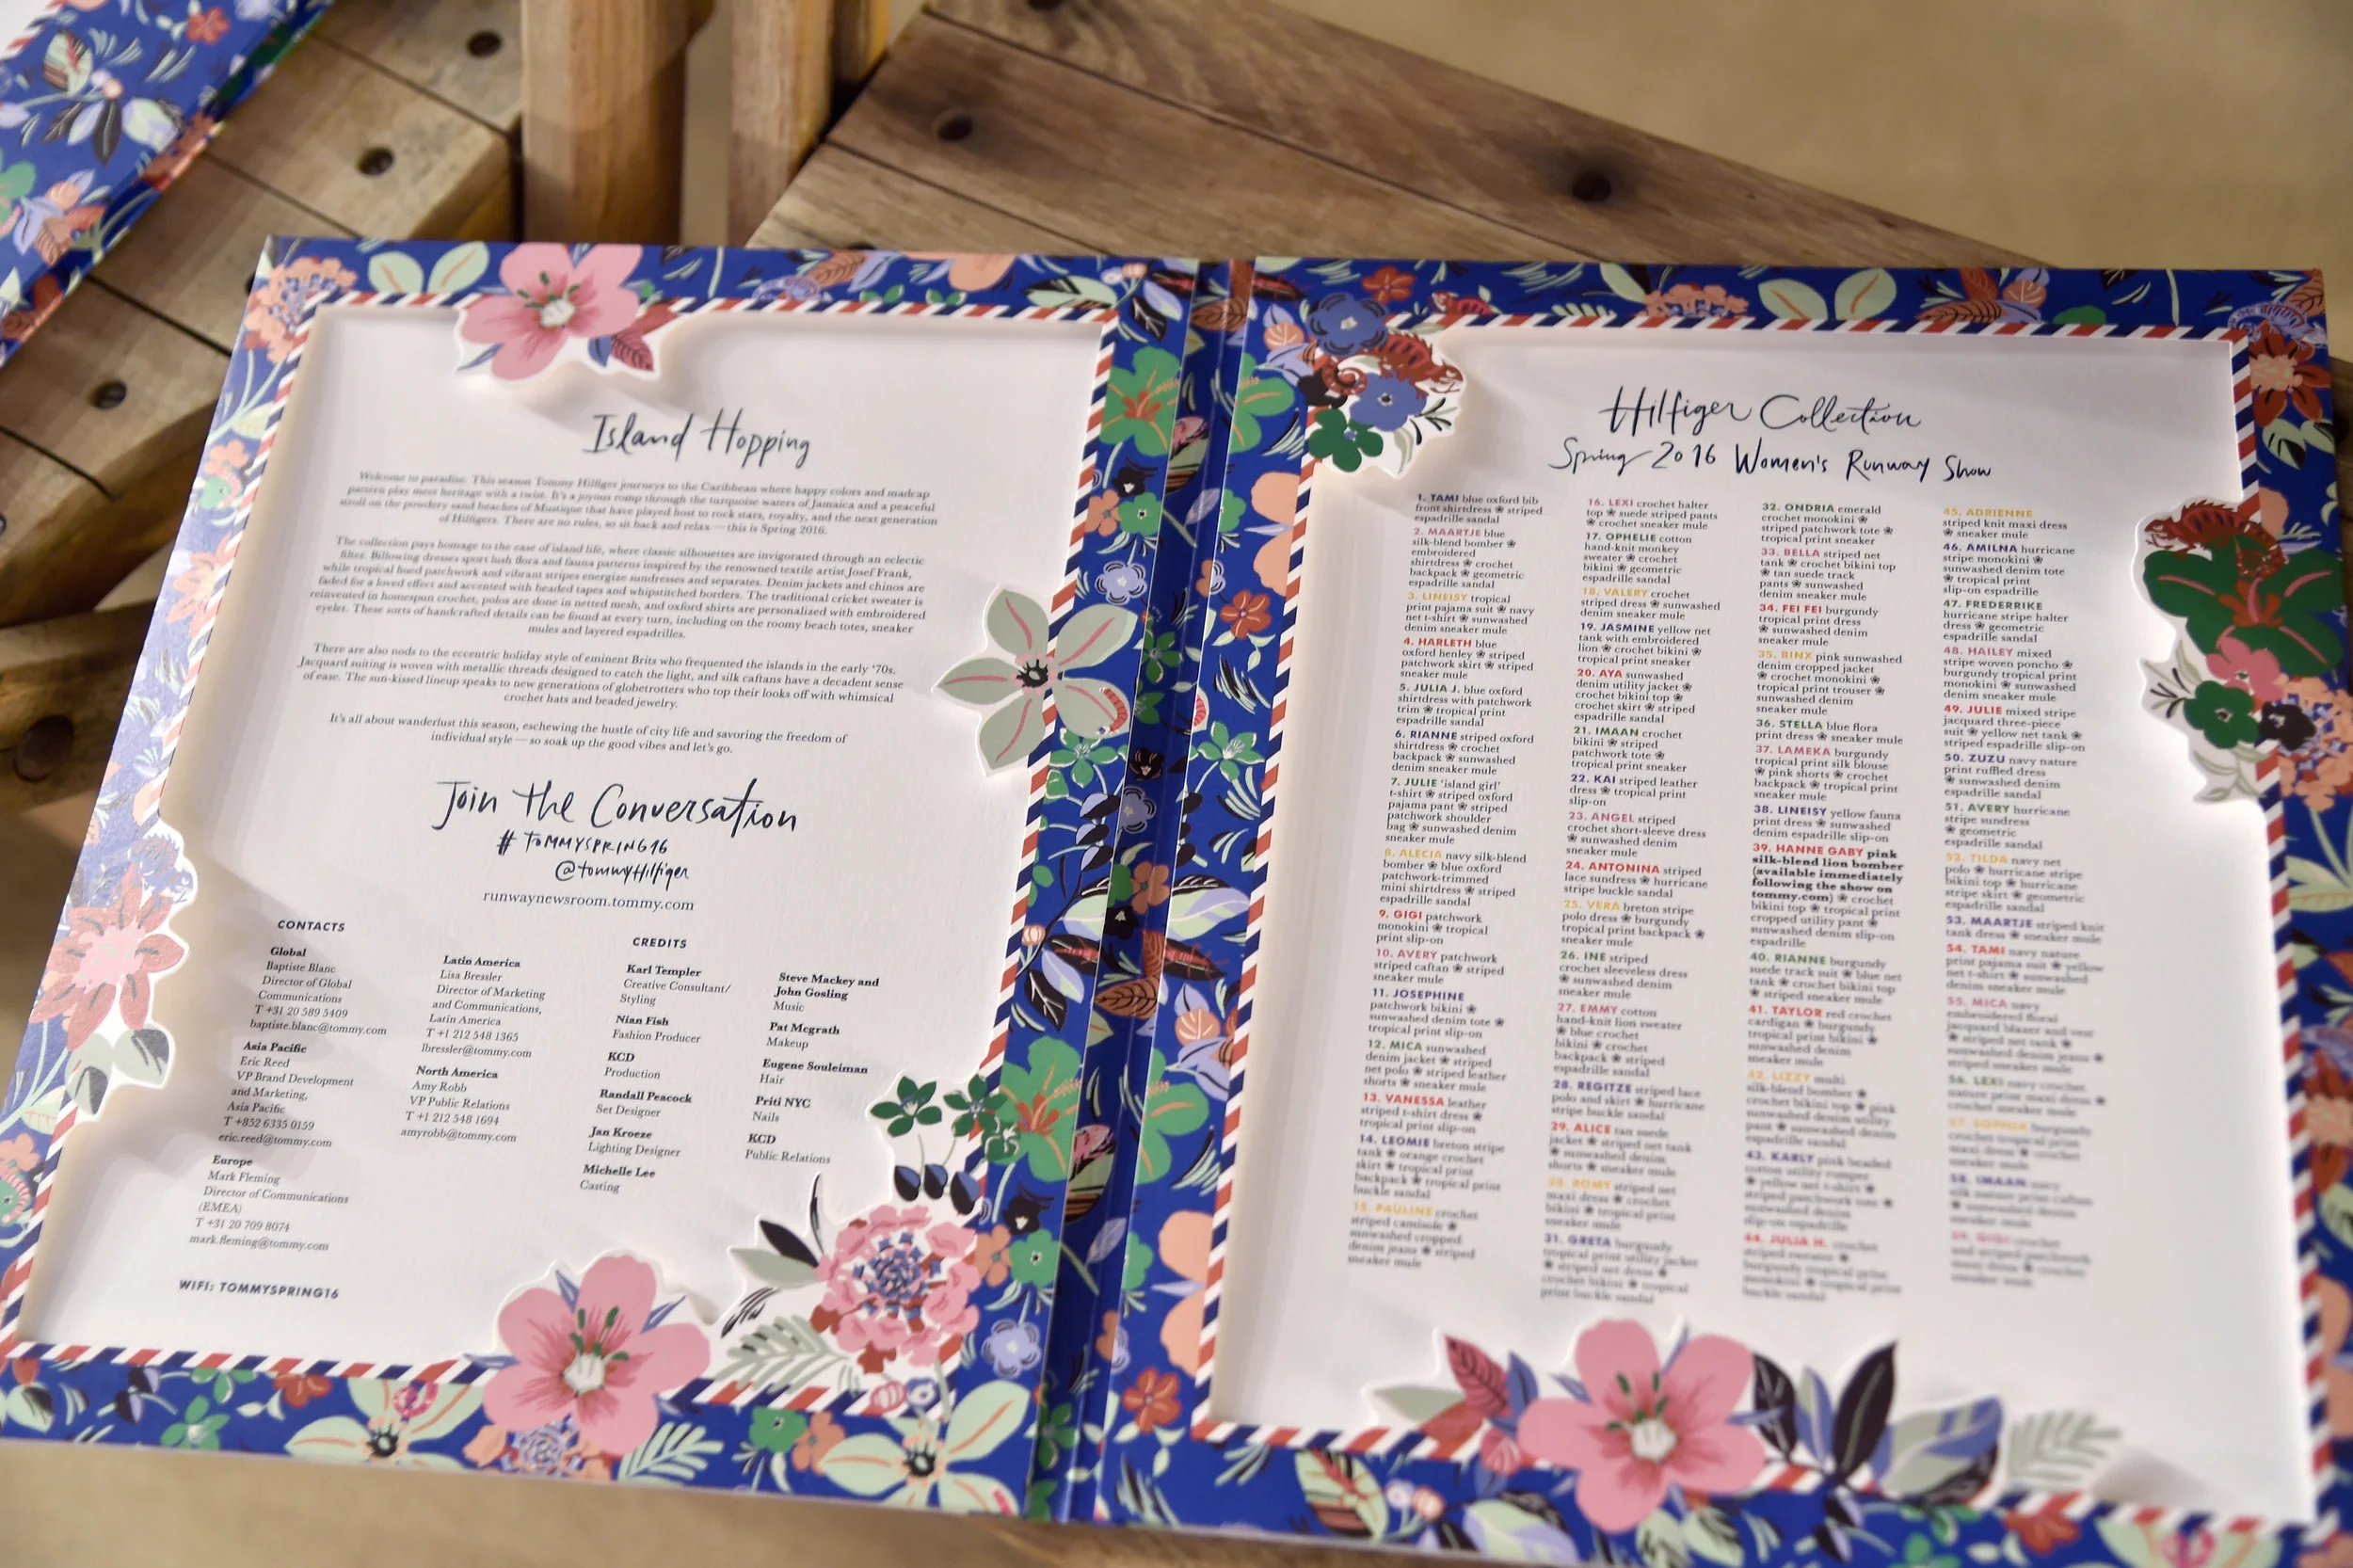 Island Hopping
Welcome to paradise. This season Tommy Hilfiger journeys to the Caribbean where happy colors and madcap
pattern play meet heritage with a twist. It's a joyous romp through the turquoise waters of Jamaica and a peaceful
stroll on the powdery sand beaches of Mustique that have played host to rock stars, royalty, and the next generation
of Hilfigers. There are no rules, so sit back and relax — this is Spring 2016.
The collection pays homage to the ease of island life, where classic silhouettes are invigorated through an eclectic
filter. Billowing dresses sport lush flora and fauna patterns inspired by the renowned textile artist Josef Frank,
while tropical hued patchwork and vibrant stripes energize sundresses and separates. Denim jackets and chinos are
faded for a loved effect and accented with beaded tapes and whipstitched borders. The traditional cricket sweater is
reinvented in homespun crochet, polos are done in netted mesh, and oxford shirts are personalized with embroidered
eyelet. These sorts of handcrafted details can be found at every turn, including on the roomy beach totes, sneaker
mules and layered espadrilles.
There are also nods to the eccentric holiday style of eminent Brits who frequented the islands in the early '70s.
Jacquard suiting is woven with metallic threads designed to catch the light, and silk caftans have a decadent sense
of ease. The sun-kissed lineup speaks to new generations of globetrotters who top their looks off with whimsical
crochet hats and beaded jewelry.
It's all about wanderlust this season, eschewing the hustle of city life and savoring the freedom of
individual style — so soak up the good vibes and let's go.
Join the Conversation
#TOMMYSPRING16
@tommyHilfiger
runwaynewsroom.tommy.com
CONTACTS
Global
Baptiste Blanc
Director of Global
Communications
T +31 20 589 5409
baptiste.blanc@tommy.com
Asia Pacific
Eric Reed
VP Brand Development
and Marketing,
Asia Pacific
T +852 6335 0159
eric.reed@tommy.com
Europe
Mark Fleming
Director of Communications
(EMEA)
T +31 20 709 8074
mark.fleming@tommy.com
Latin America
Lisa Bressler
Director of Marketing
and Communications,
Latin America
T +1 212 548 1365
lbressler@tommy.com
North America
Amy Robb
VP Public Relations
T +1 212 548 1694
amyrobb@tommy.com
CREDITS
Karl Templer
Creative Consultant/
Styling
Nian Fish
Fashion Producer
KCD
Production
Randall Peacock
Set Designer
Jan Kroeze
Lighting Designer
Michelle Lee
Casting
Steve Mackey and
John Gosling
Music
Pat Mcgrath
Makeup
Eugene Souleiman
Hair
Priti NYC
Nails
KCD
Public Relations
WIFI: TOMMYSPRING16
Hilfiger Collection
Spring 2016 Women's Runway Show
1. TAMI blue oxford bib
front shirtdress ❀ striped
espadrille sandal
2. MAARTJE blue
silk-blend bomber ❀
embroidered
shirtdress ❀ crochet
backpack ❀ geometric
espadrille sandal
3. LINEISY tropical
print pajama suit ❀ navy
net t-shirt ❀ sunwashed
denim sneaker mule
4. HARLETH blue
oxford henley ❀ striped
patchwork skirt ❀ striped
sneaker mule
5. JULIA J. blue oxford
shirtdress with patchwork
trim ❀ tropical print
espadrille sandal
6. RIANNE striped oxford
shirtdress ❀ crochet
backpack ❀ sunwashed
denim sneaker mule
7. JULIE 'island girl'
t-shirt ❀ striped oxford
pajama pant ❀ striped
patchwork shoulder
bag ❀ sunwashed denim
sneaker mule
8. ALECIA navy silk-blend
bomber ❀ blue oxford
patchwork-trimmed
mini shirtdress ❀ striped
espadrille sandal
9. GIGI patchwork
monokini ❀ tropical
print slip-on
10. AVERY patchwork
striped caftan ❀ striped
sneaker mule
11. JOSEPHINE
patchwork bikini ❀
sunwashed denim tote ❀
tropical print slip-on
12. MICA sunwashed
denim jacket ❀ striped
net polo ❀ striped leather
shorts ❀ sneaker mule
13. VANESSA leather
striped t-shirt dress ❀
tropical print slip-on
14. LEOMIE breton stripe
tank ❀ orange crochet
skirt ❀ tropical print
backpack ❀ tropical print
buckle sandal
15. PAULINE crochet
striped camisole ❀
sunwashed cropped
denim jeans ❀ striped
sneaker mule
16. LEXI crochet halter
top ❀ suede striped pants
❀ crochet sneaker mule
17. OPHELIE cotton
hand-knit monkey
sweater ❀ crochet
bikini ❀ geometric
espadrille sandal
18. VALERY crochet
striped dress ❀ sunwashed
denim sneaker mule
19. JASMINE yellow net
tank with embroidered
lion ❀ crochet bikini ❀
tropical print sneaker
20. AYA sunwashed
denim utility jacket ❀
crochet bikini top ❀
crochet skirt ❀ striped
espadrille sandal
21. IMAAN crochet
bikini ❀ striped
patchwork tote ❀
tropical print sneaker
22. KAI striped leather
dress ❀ tropical print
slip-on
23. ANGEL striped
crochet short-sleeve dress
❀ sunwashed denim
sneaker mule
24. ANTONINA striped
lace sundress ❀ hurricane
stripe buckle sandal
25. VERA breton stripe
polo dress ❀ burgundy
tropical print backpack ❀
sneaker mule
26. INE striped
crochet sleeveless dress
❀ sunwashed denim
sneaker mule
27. EMMY cotton
hand-knit lion sweater
❀ blue crochet
bikini ❀ crochet
backpack ❀ striped
espadrille sandal
28. REGITZE striped lace
polo and skirt ❀ hurricane
stripe buckle sandal
29. ALICE tan suede
jacket ❀ striped net tank
❀ sunwashed denim
shorts ❀ sneaker mule
30. ROMY striped net
maxi dress ❀ crochet
bikini ❀ tropical print
sneaker mule
31. GRETA burgundy
tropical print utility jacket
❀ striped net dress ❀
crochet bikini ❀ tropical
print buckle sandal
32. ONDRIA emerald
crochet monokini ❀
striped patchwork tote ❀
tropical print sneaker
33. BELLA striped net
tank ❀ crochet bikini top
❀ tan suede track
pants ❀ sunwashed
denim sneaker mule
34. FEI FEI burgundy
tropical print dress
❀ sunwashed denim
sneaker mule
35. BINX pink sunwashed
denim cropped jacket
❀ crochet monokini ❀
tropical print trouser ❀
sunwashed denim
sneaker mule
36. STELLA blue flora
print dress ❀ sneaker mule
37. LAMEKA burgundy
tropical print silk blouse
❀ pink shorts ❀ crochet
backpack ❀ tropical print
sneaker mule
38. LINEISY yellow fauna
print dress ❀ sunwashed
denim espadrille slip-on
39. HANNE GABY pink
silk-blend lion bomber
(available immediately
following the show on
tommy.com) ❀ crochet
bikini top ❀ tropical print
cropped utility pant ❀
sunwashed denim slip-on
espadrille
40. RIANNE burgundy
suede track suit ❀ blue net
tank ❀ crochet bikini top
❀ striped sneaker mule
41. TAYLOR red crochet
cardigan ❀ burgundy
tropical print bikini ❀
sunwashed denim
sneaker mule
42. LIZZY multi
silk-blend bomber ❀
crochet bikini top ❀ pink
sunwashed denim utility
pant ❀ sunwashed denim
espadrille sandal
43. KARLY pink beaded
cotton utility romper
❀ yellow net t-shirt ❀
striped patchwork tote ❀
sunwashed denim
slip-on espadrille
44. JULIA H. crochet
striped sweater ❀
burgundy tropical print
monokini ❀ tropical print
buckle sandal
45. ADRIENNE
striped knit maxi dress
❀ sneaker mule
46. AMILNA hurricane
stripe monokini ❀
sunwashed denim tote
❀ tropical print
slip-on espadrille
47. FREDERRIKE
hurricane stripe halter
dress ❀ geometric
espadrille sandal
48. HAILEY mixed
stripe woven poncho ❀
burgundy tropical print
monokini ❀ sunwashed
denim sneaker mule
49. JULIE mixed stripe
jacquard three-piece
suit ❀ yellow net tank ❀
striped espadrille slip-on
50. ZUZU navy nature
print ruffled dress
❀ sunwashed denim
espadrille sandal
51. AVERY hurricane
stripe sundress
❀ geometric
espadrille sandal
52. TILDA navy net
polo ❀ hurricane stripe
bikini top ❀ hurricane
stripe skirt ❀ geometric
espadrille sandal
53. MAARTJE striped knit
tank dress ❀ sneaker mule
54. TAMI navy nature
print pajama suit ❀ yellow
net t-shirt ❀ sunwashed
denim sneaker mule
55. MICA navy
embroidered floral
jacquard blazer and vest
❀ striped net tank ❀
sunwashed denim jeans ❀
striped sneaker mule
56. LEXI navy crochet
nature print maxi dress ❀
crochet sneaker mule
57. SOPHIA burgundy
crochet tropical print
maxi dress ❀ crochet
sneaker mule
58. IMAAN navy
silk nature print caftan
❀ sunwashed denim
sneaker mule
59. GIGI crochet
striped patchwork
maxi dress ❀ crochet
sneaker mule